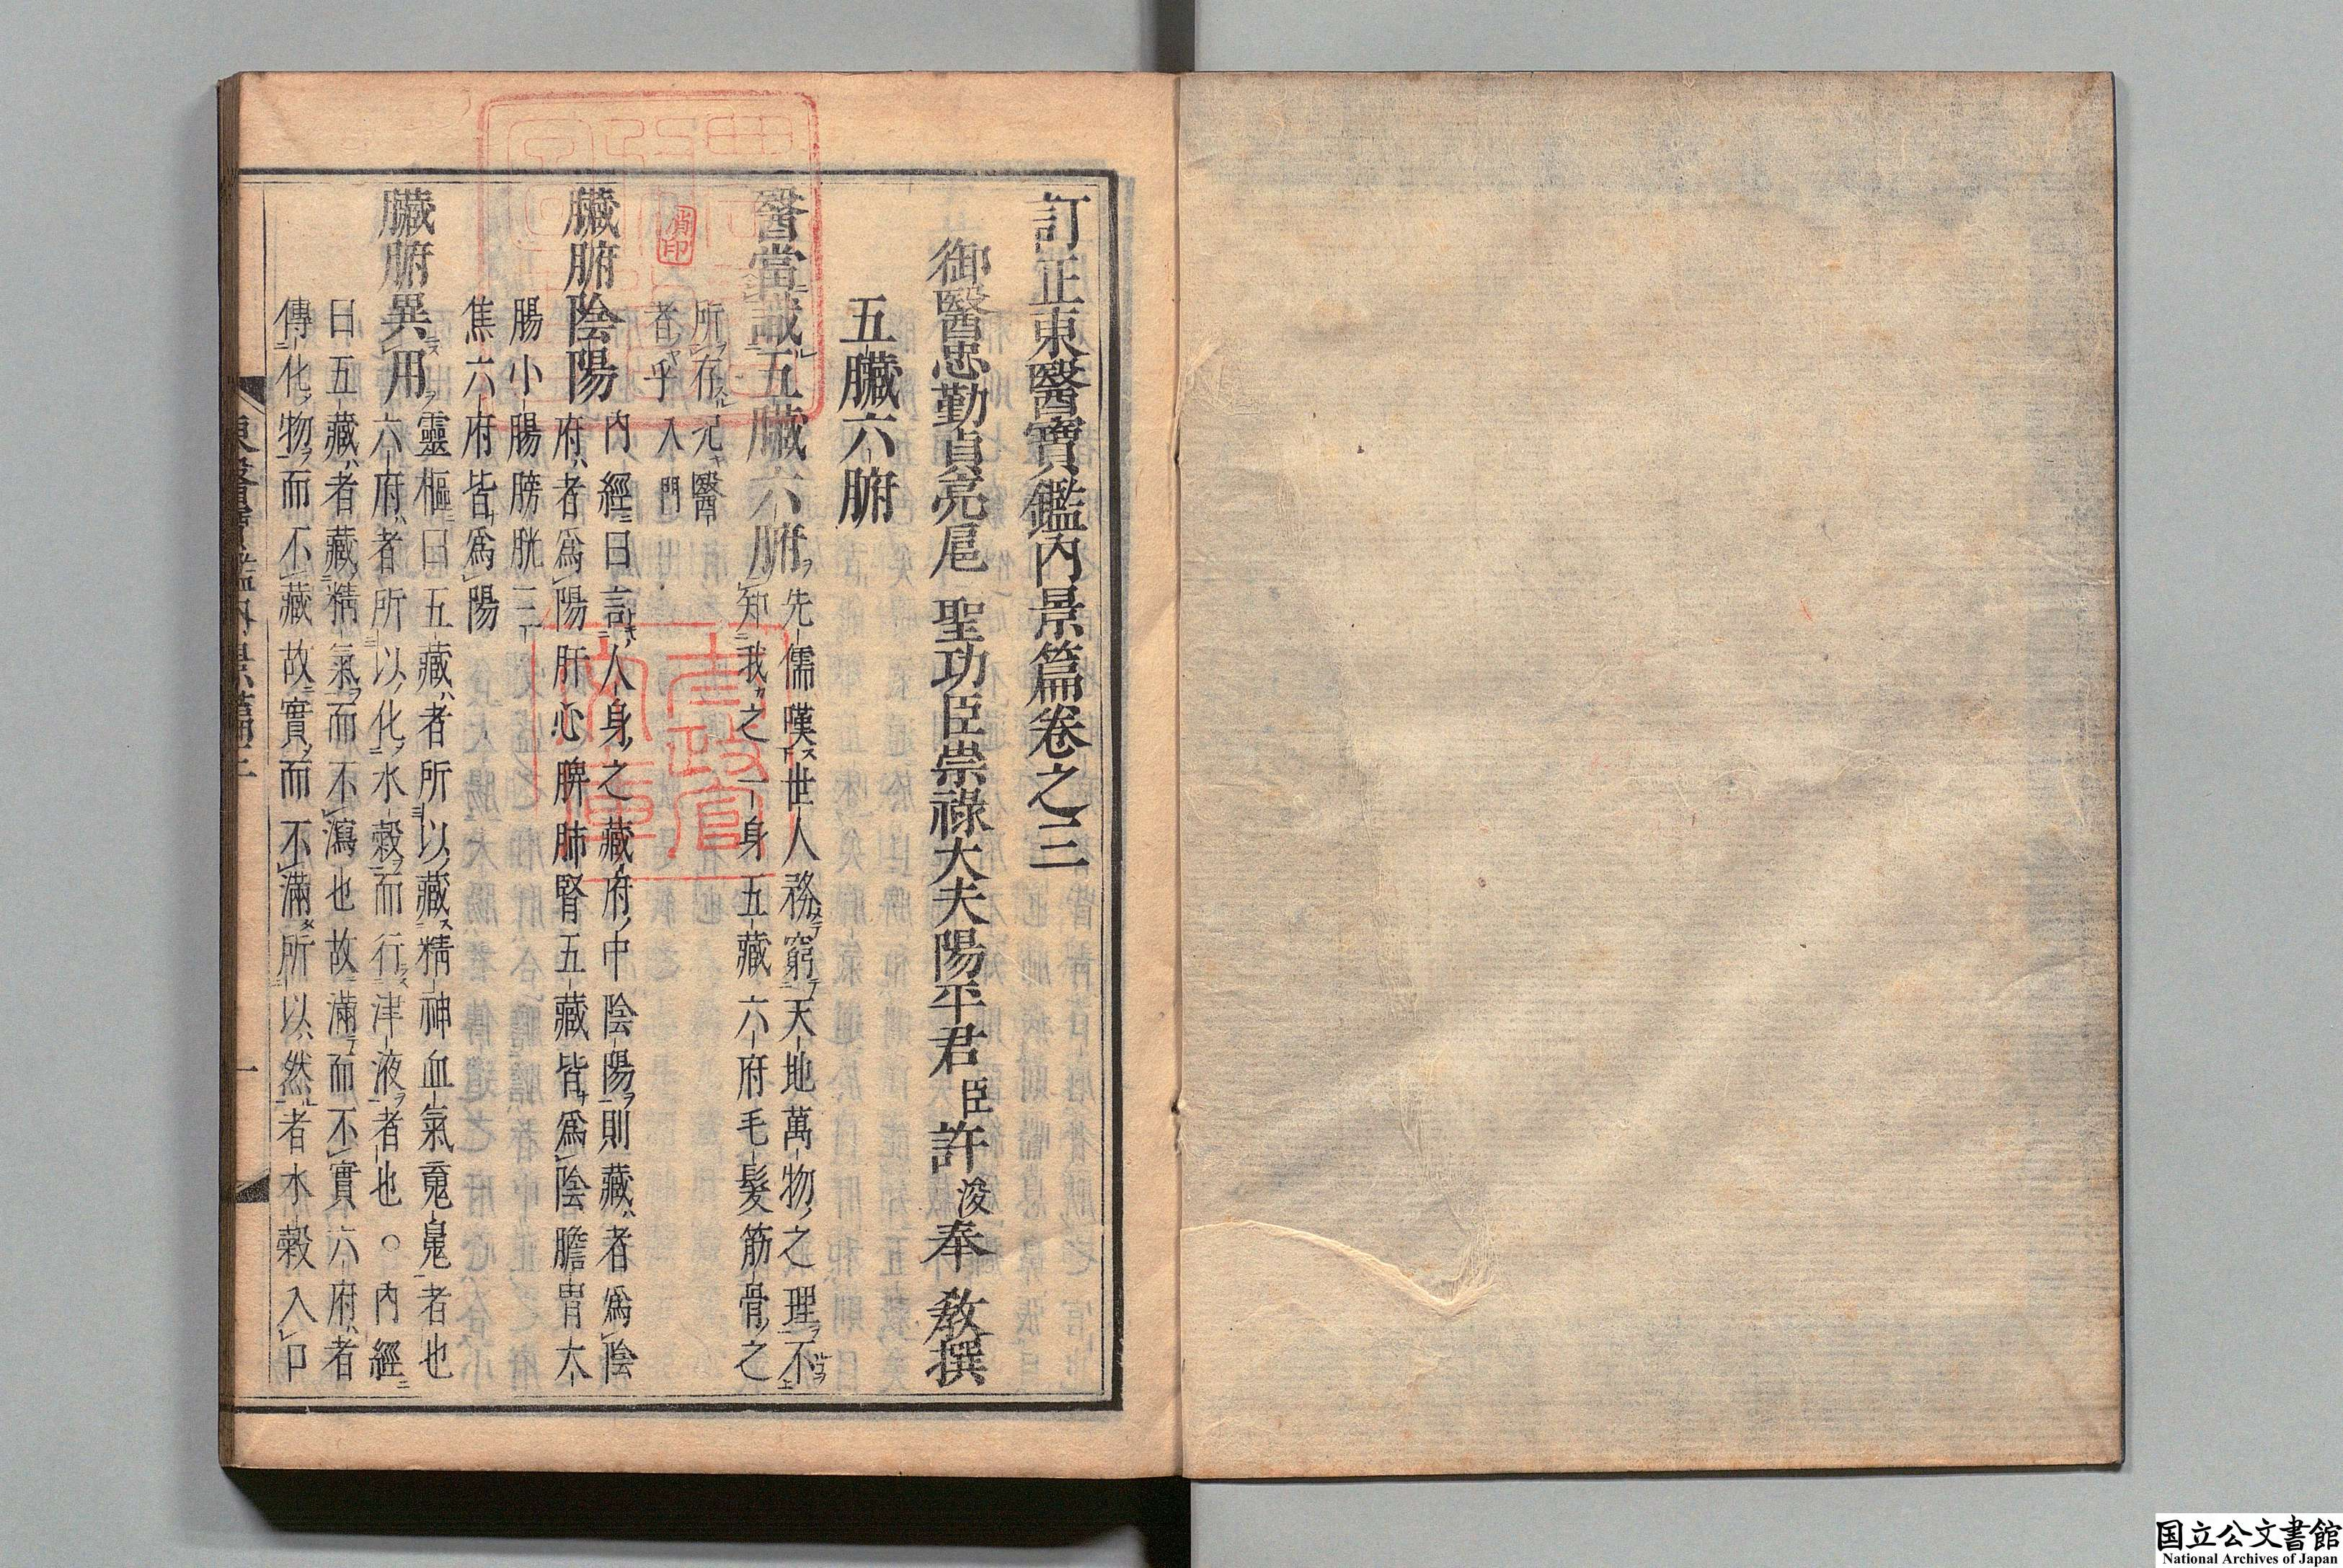 訂正東醫寶鑑內景篇卷之三
御醫忠勤貞亮扈 聖功臣崇祿大夫陽平君臣許浚奉 敎撰
五臟六腑
醫當識五臟六腑 先儒嘆世人務窮天地萬物之理不
知我之一身五藏六府毛髮筋骨之
所存况醫
者乎入門
臟腑陰陽 內經曰言人身之藏府中陰陽則藏者爲陰
府者爲陽肝心脾肺腎五藏皆爲陰膽胃大
腸小腸膀胱三
焦六府皆爲陽
臟腑異用 靈樞曰五藏者所以藏精神血氣䰟魄者也
六府者所以化水穀而行津液者也○內經
曰五藏者藏精氣而不瀉也故滿而不實六府者
傳化物而不藏故實而不滿所以然者水穀入口
一
肖印
太政官
文庫
国立公文書館
National Archives of Japan